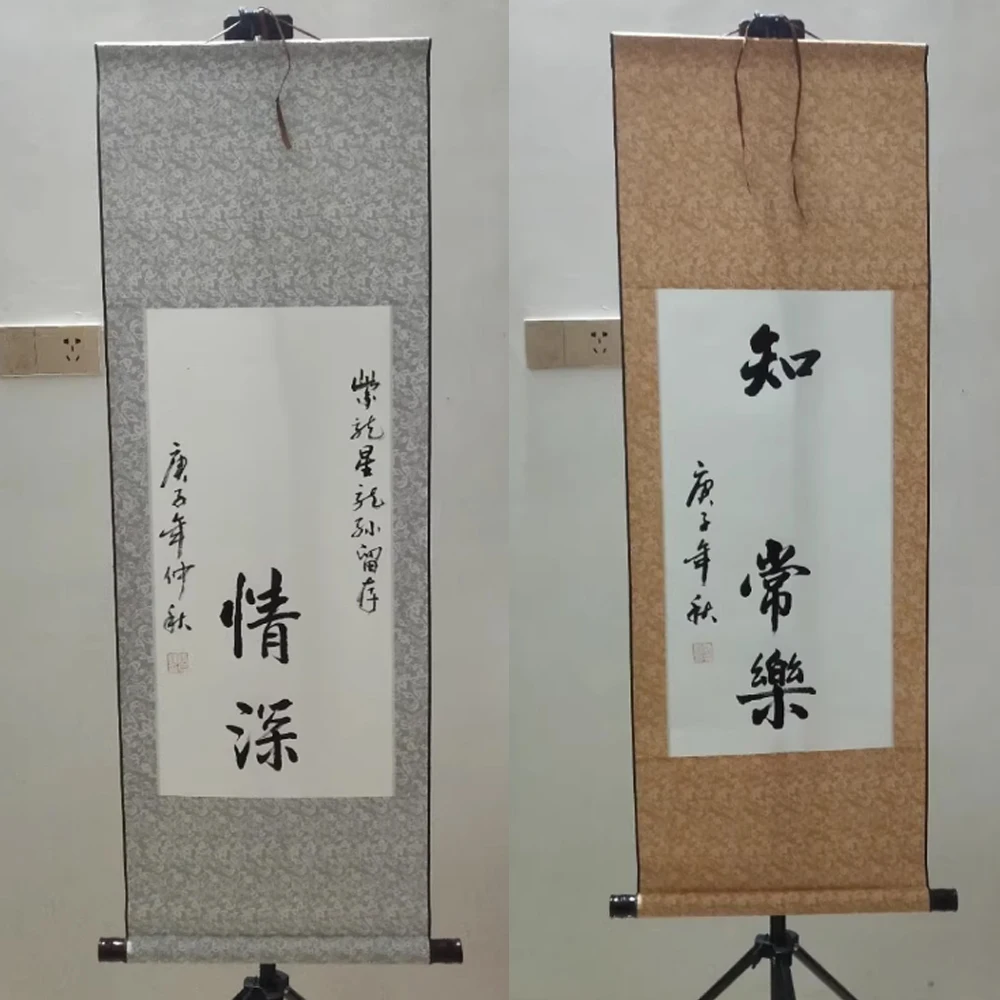 紫龍星龍孙留存
情深
庚子年仲秋
知常樂
庚子年秋